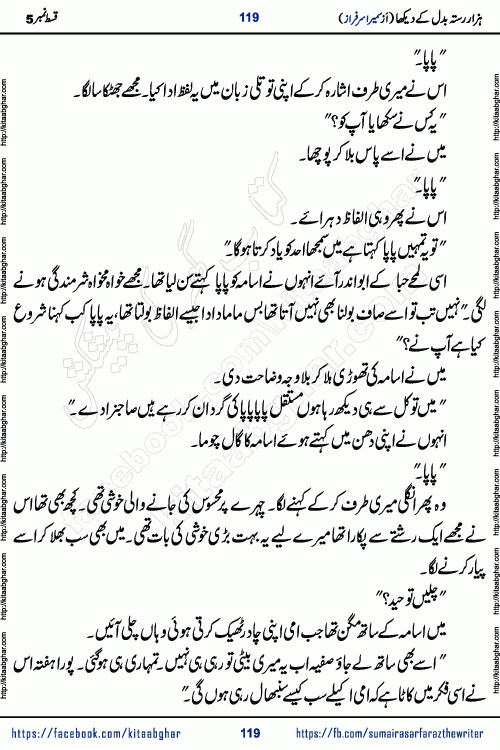 ہزار رستہ بدل کے دیکھا (از سمیرا سرفراز) 119 قسط نمبر 5
"پاپا۔"
اس نے میری طرف اشارہ کرکے اپنی توتلی زبان میں یہ لفظ ادا کیا۔ مجھے جھٹکا سا لگا۔
"یہ کس نے سکھایا آپ کو؟"
میں نے اسے پاس بلا کر پوچھا۔
"پاپا۔"
اس نے پھر وہی الفاظ دہرائے۔
"تو یہ تمہیں پاپا کہتا ہے میں سمجھا احد کو یاد کرتا ہوگا۔"
اسی لمحے حبا کے ابو اندر آئے انہوں نے اسامہ کو پاپا کہتے سن لیا تھا۔ مجھے خواہ مخواہ شرمندگی ہونے
لگی۔ "نہیں تب تو اسے صاف بولنا بھی نہیں آتا تھا بس ماما دادا جیسے الفاظ بولتا تھا، یہ پاپا کب کہنا شروع
کیا ہے آپ نے؟"
میں نے اسامہ کی تھوڑی ہلا کر بلاوجہ وضاحت دی۔
"میں تو کل سے ہی دیکھ رہا ہوں مستقل پاپا پاپا کی گردان کر رہے ہیں صاحبزادے۔"
انہوں نے اپنی دھن میں کہتے ہوئے اسامہ کا گال چوما۔
"پاپا۔"
وہ پھر انگلی میری طرف کرکے کہنے لگا۔ چہرے پر محسوس کی جانے والی خوشی تھی۔ کچھ بھی تھا اس
نے مجھے ایک رشتے سے پکارا تھا میرے لیے یہ بہت بڑی خوشی کی بات تھی۔ میں بھی سب بھلا کر اسے
پیار کرنے لگا۔
"چلیں توحید؟"
میں اسامہ کے ساتھ مگن تھا جب امی اپنی چادر ٹھیک کرتی ہوئی وہاں چلی آئیں۔
"اسے بھی ساتھ لے جاؤ صفیہ اب یہ میری بیٹی تو رہی ہی نہیں۔ تمہاری ہی ہوگئی۔ پورا ہفتہ اس
نے اسی فکر میں کاٹا ہے کہ امی اکیلے سب کیسے سنبھال رہی ہوں گی۔"
https://facebook.com/kitaabghar 119 https://fb.com/sumairasarfarazthewriter
http://kitaabghar.com